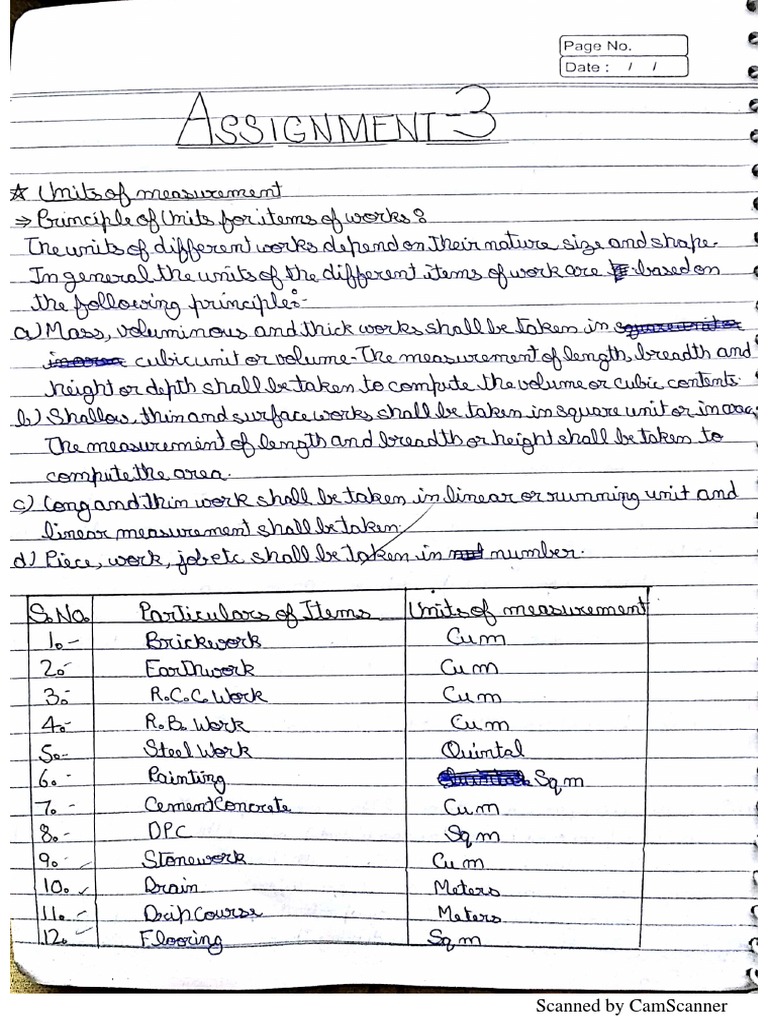 Page No.
Date : / /
ASSIGNMENT-3
☆ Units of measurement
⇒ Principle of Units for items of works:
The units of different works depend on their nature size and shape.
In general the units of the different items of work are based on
the following principle:-
a) Mass, voluminous and thick works shall be taken in square unit or
in area cubic unit or volume. The measurement of length, breadth and
height or depth shall be taken to compute the volume or cubic contents.
b) Shallow, thin and surface works shall be taken in square unit or in area,
The measurement of length and breadth or height shall be taken to
compute the area.
c) Long and thin work shall be taken in linear or running unit and
linear measurement shall be taken.
d) Piece, work, job etc shall be taken in number.
S.No. Particulars of Items Units of measurement
1.- Brickwork Cum
2.- Earthwork Cum
3.- R.C.C. Work Cum
4.- R.B. Work Cum
5.- Steel Work Quintal
6.- Painting Sqm
7.- Cement Concrete Cum
8.- DPC Sqm
9.- Stonework Cum
10. Drain Meters
11.- Drip Course Meters
12. Flooring Sqm
Scanned by CamScanner